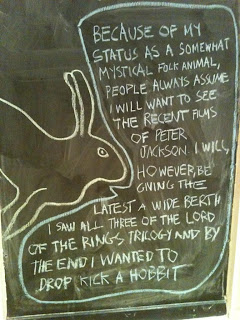 BECAUSE OF MY
STATUS AS A SOMEWHAT
MYSTICAL FOLK ANIMAL,
PEOPLE ALWAYS ASSUME
I WILL WANT TO SEE
THE RECENT FILMS
OF PETER
JACKSON. I WILL,
HOWEVER, BE
GIVING THE
LATEST A WIDE BERTH
I SAW ALL THREE OF THE LORD
OF THE RINGS TRILOGY AND BY
THE END I WANTED TO
DROP KICK A HOBBIT